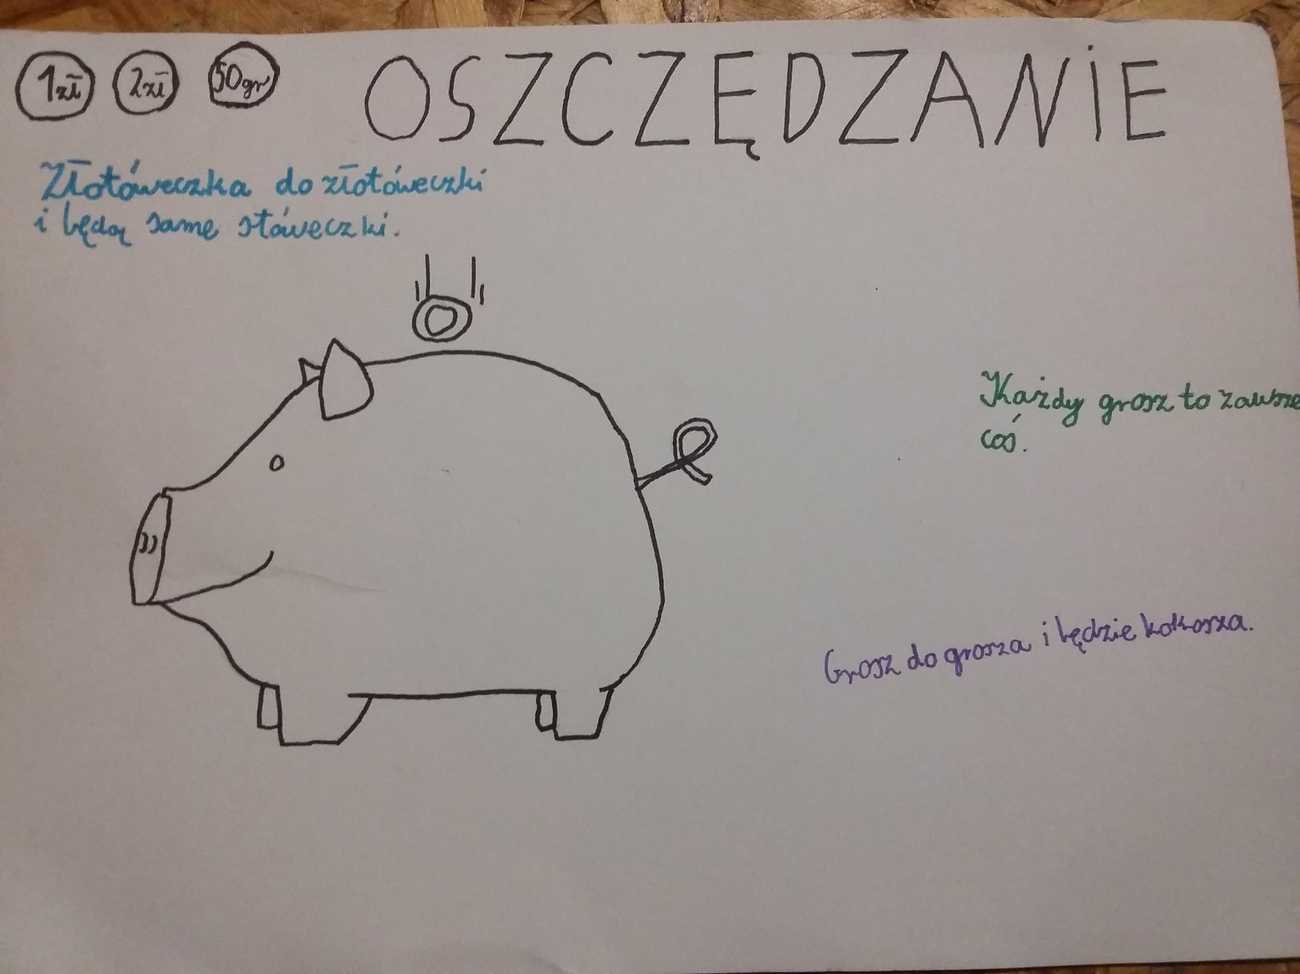 1zł 2zł 50gr
OSZCZĘDZANIE
Złotóweczka do złotóweczki
i będą same stóweczki.
Każdy grosz to zawsze
coś.
Grosz do grosza i będzie kokosza.